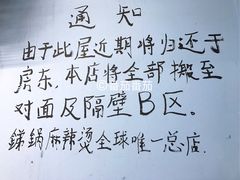 通知
由于此屋近期将归还于
房东,本店将全部搬至
对面及隔壁B区。
锑锅麻辣烫全球唯一总店